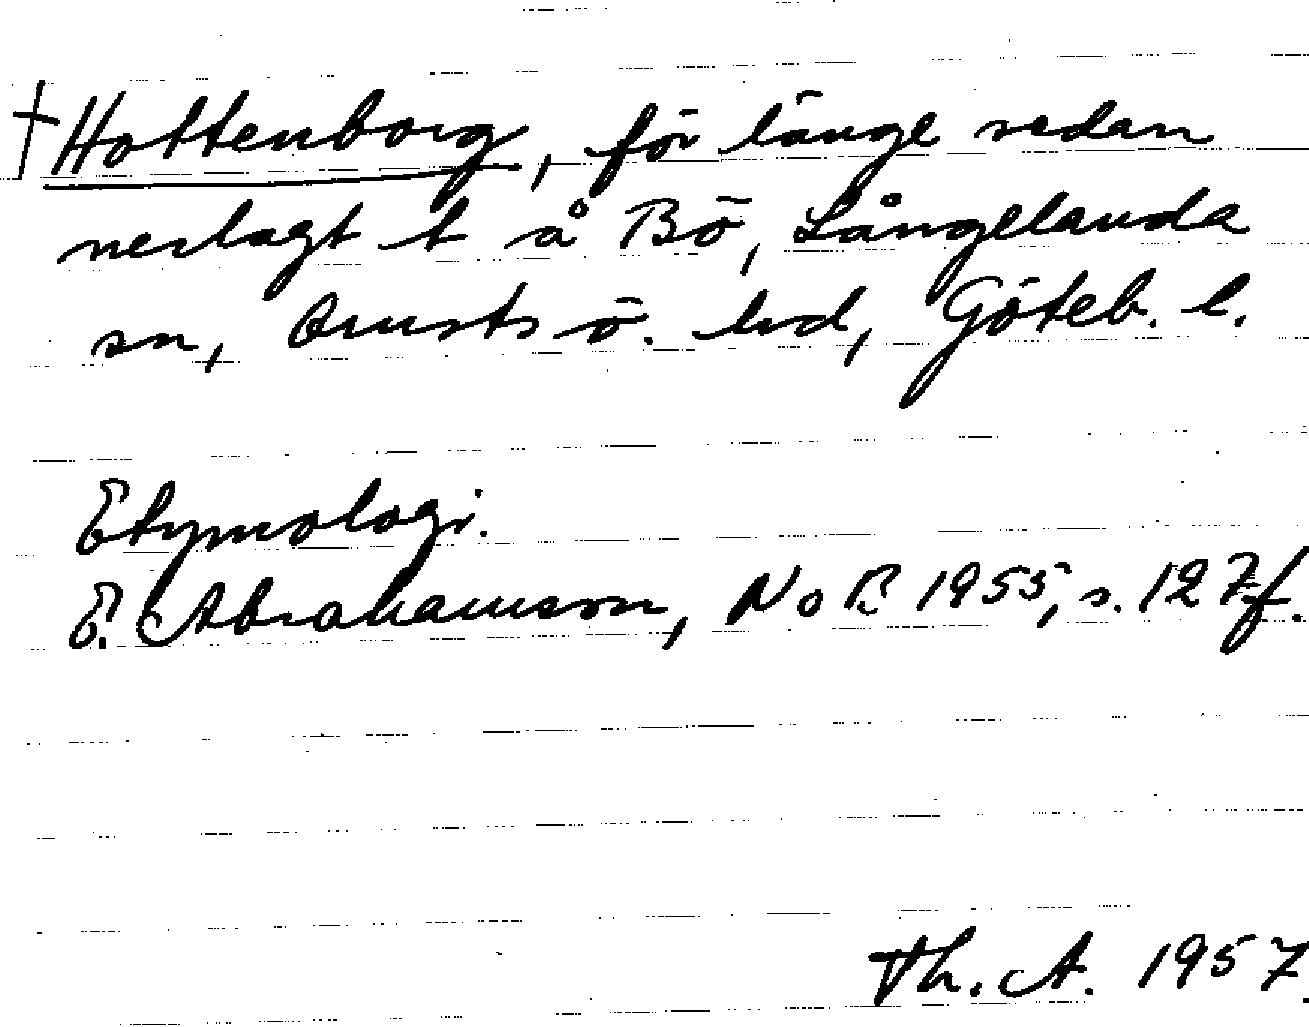 † Hottenborg, för länge sedan
nerlagt t å Bö, Långelanda
sn, Orusts ö. hd, Göteb. l.
Etymologi.
E. Abrahamson, NoB 1955, s. 127f.
Th. A. 1957.